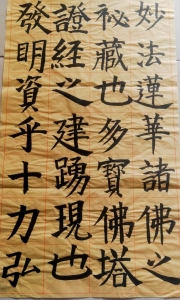 妙法蓮華諸佛之
祕藏也多寶佛塔
證經之建踴現也
發明資乎十力弘